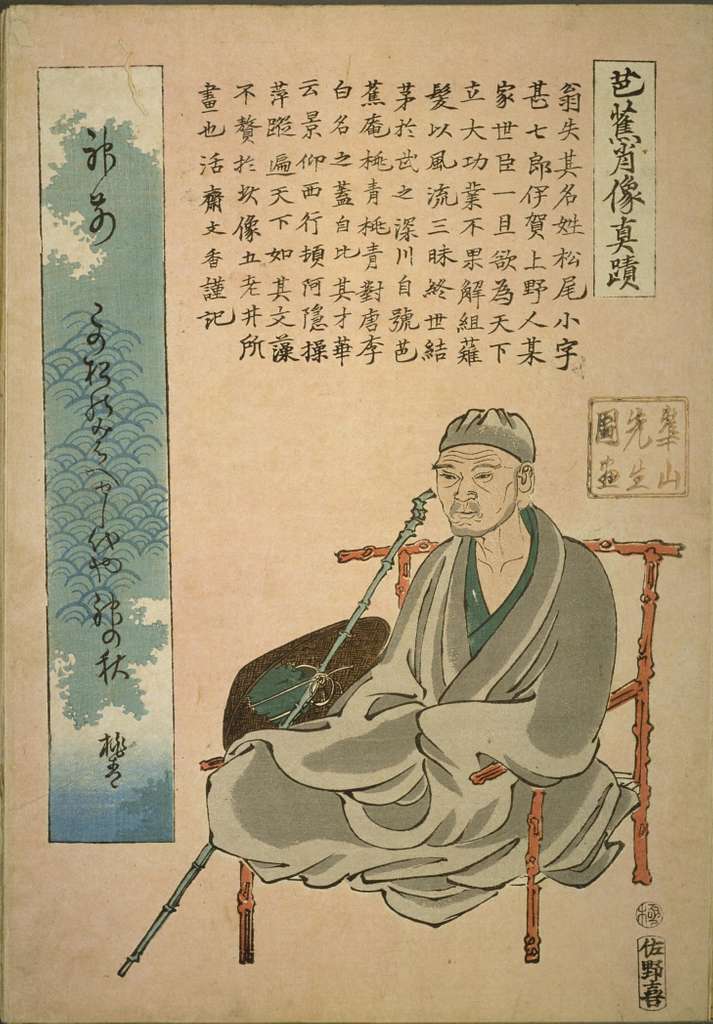 芭蕉肖像真蹟
翁失其名姓松尾小字
甚七郎伊賀上野人某
家世臣一旦欲為天下
立大功業不果解組薙
髮以風流三昧終世結
茅於武之深川自號芭
蕉庵桃青桃青對唐李
白名之蓋自比其才華
云景仰西行頓阿隱操
萍蹤遍天下如其文藻
不贅於玆像五老井所
畫也活齋文香謹記
華山
先生
圖画
神前
此松のみばへせし代や神の秋
桃青
極
佐野喜